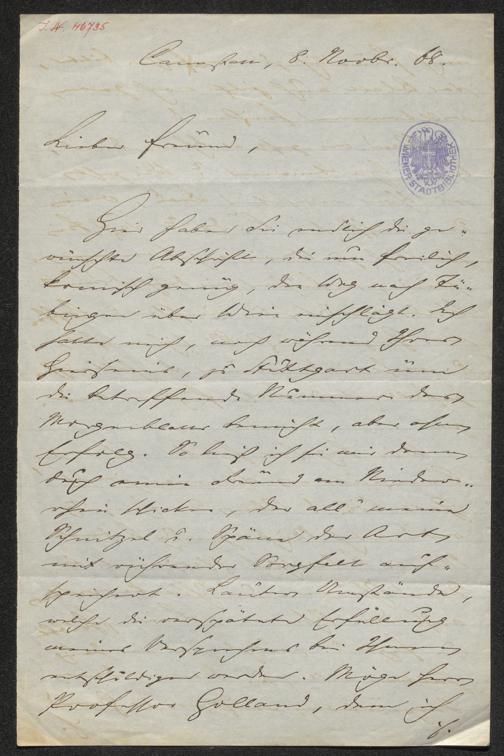 J. N. 46735
Cannstatt, 8. Novbr. 68.
WIENER STADTBIBLIOTHEK
Lieber Freund,
Hier haben Sie endlich die ge-
wünschte Abschrift, die nun freilich,
komisch genug, den Weg nach Tü-
bingen über Wien einschlägt. Ich
hatte mich, noch während Ihres
Hierseins, zu Stuttgart um
die betreffende Nummer des
Morgenblatts bemüht, aber ohne
Erfolg. So ließ ich sie mir denn
durch einen Freund am Nieder-
rhein schicken, der all' meine
Schnitzel u. Späne der Art
mit rührender Sorgfalt auf-
speichert. Lauter Umstände,
welche die verspätete Erfüllung
meines Versprechens bei Ihnen
entschuldigen werden. Möge Herr
Professor Holland, dem ich